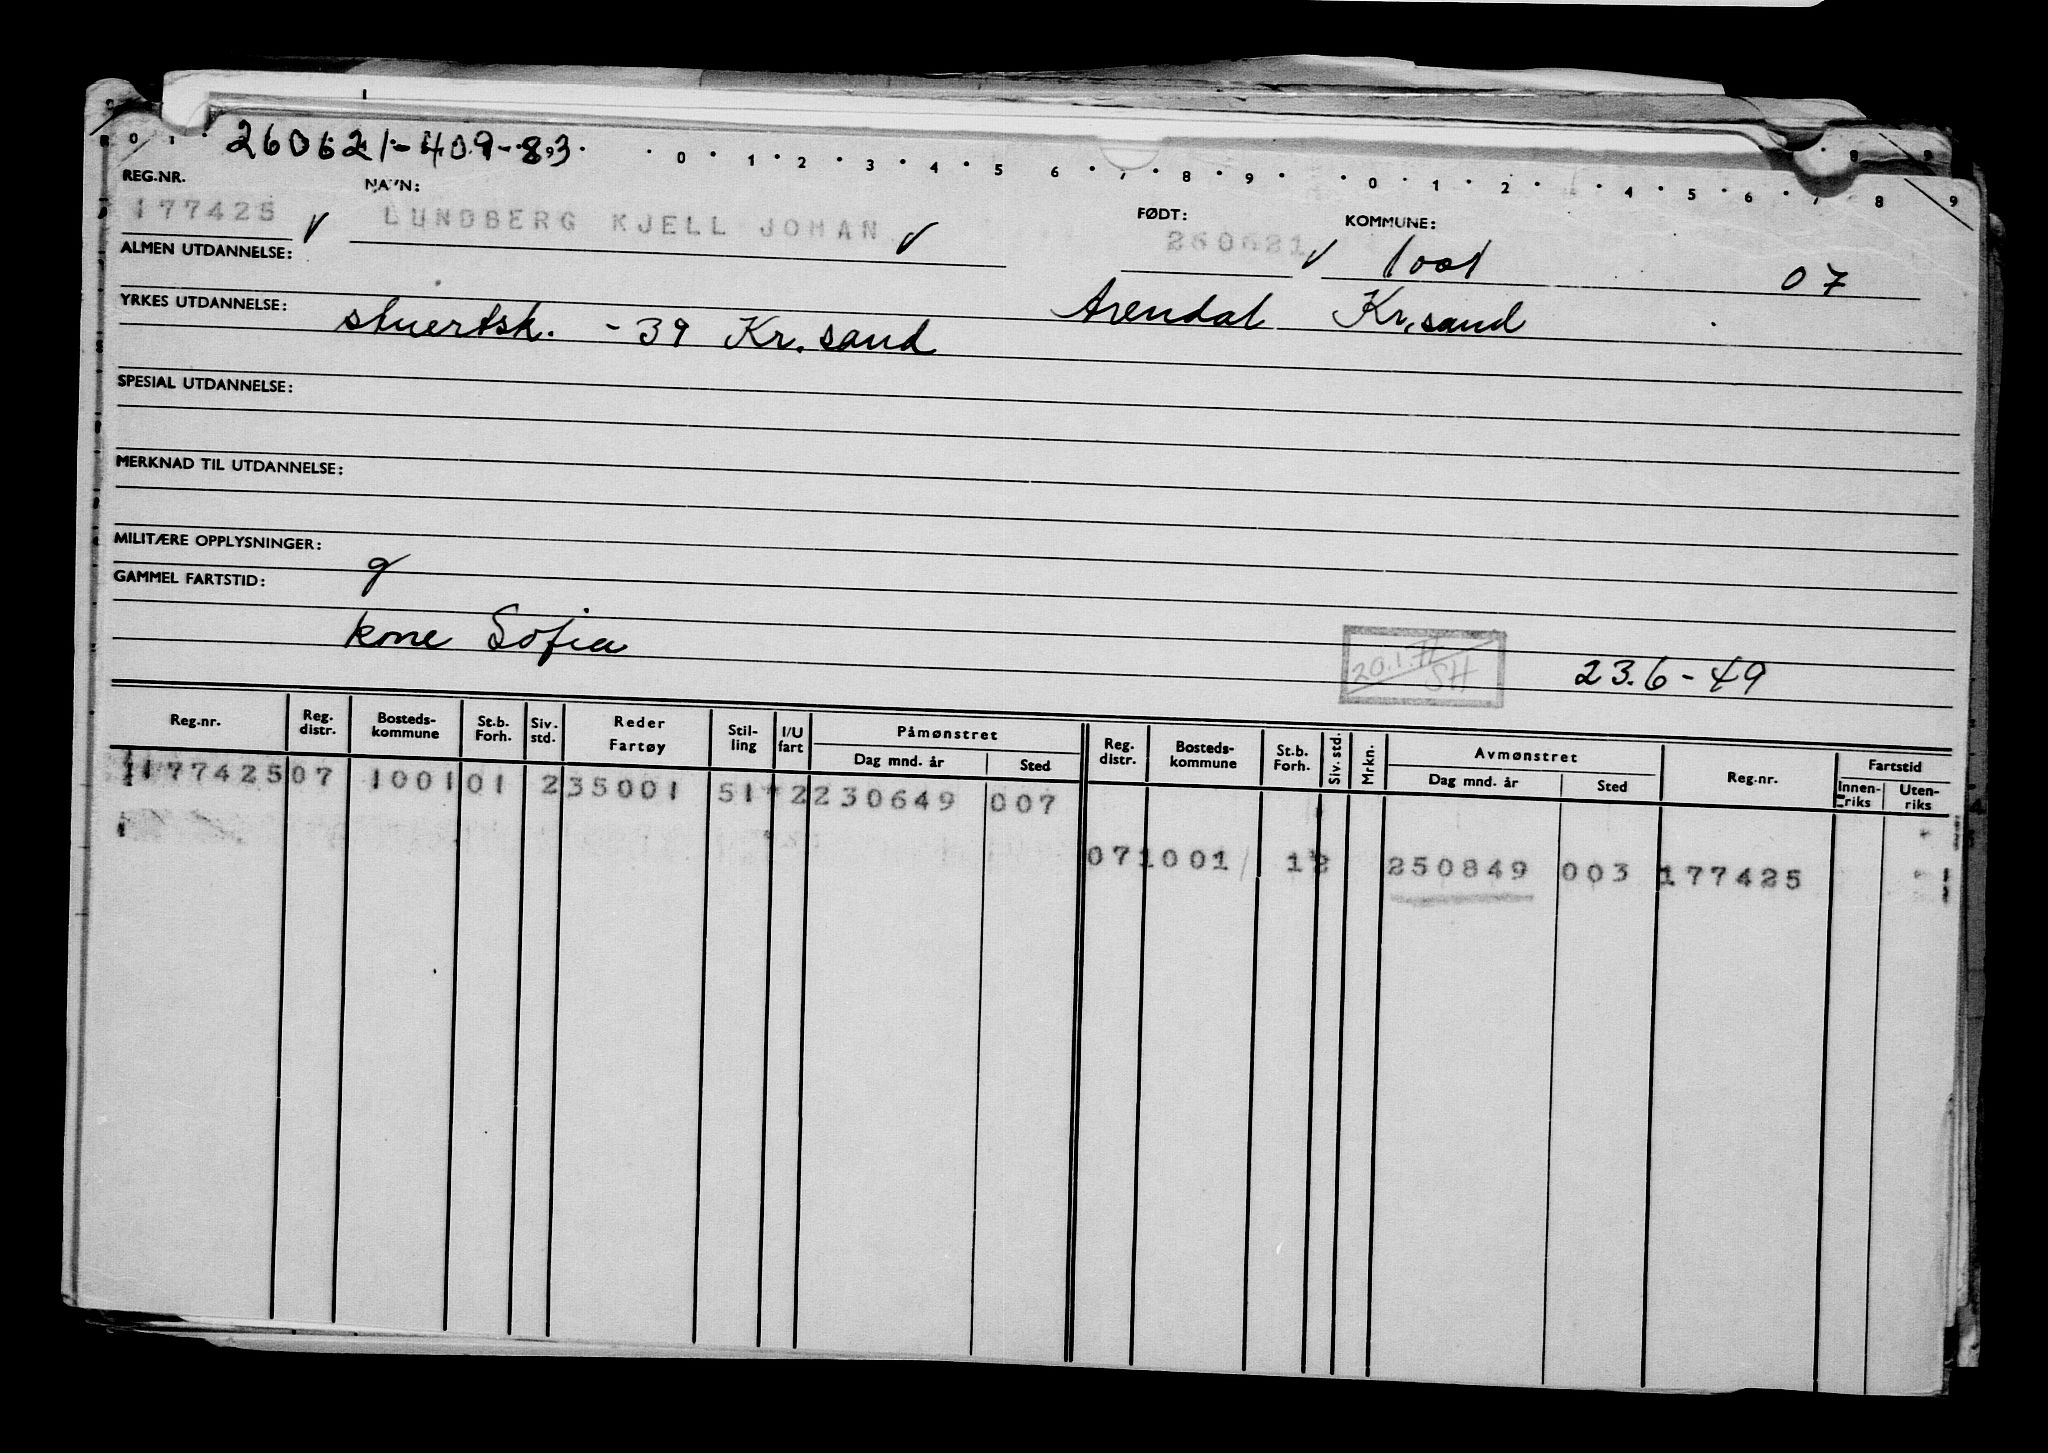 260621-409-83.
0 1 0 1 2 3 4 5 6 7 8 9 0 1 2 4 5 6 7 8 9
REG.NR. NAVN: FØDT: KOMMUNE:
177425 LUNDBERG KJELL JOHAN 260621 1001 07
ALMEN UTDANNELSE:
Arendal Kr.sand
YRKES UTDANNELSE: stuertsk. -39 Kr. sand
SPESIAL UTDANNELSE:
MERKNAD TIL UTDANNELSE:
MILITÆRE OPPLYSNINGER:
GAMMEL FARTSTID:
kone Sofia
20.1.71 SH 23.6-49
Reg.nr. Reg. distr. Bosteds- kommune St.b. Forh. Siv. std. Reder Fartøy Stil- ling I/U fart Påmønstret Dag mnd. år Sted Reg. distr. Bosteds- kommune St.b. Forh. Siv. std. Mrkn. Avmønstret Dag mnd. år Sted Reg.nr. Fartstid Innen- riks Uten- riks
177425 07 1001 01 2 35001 51 2 230649 007
07 1001 1 2 250849 003 177425